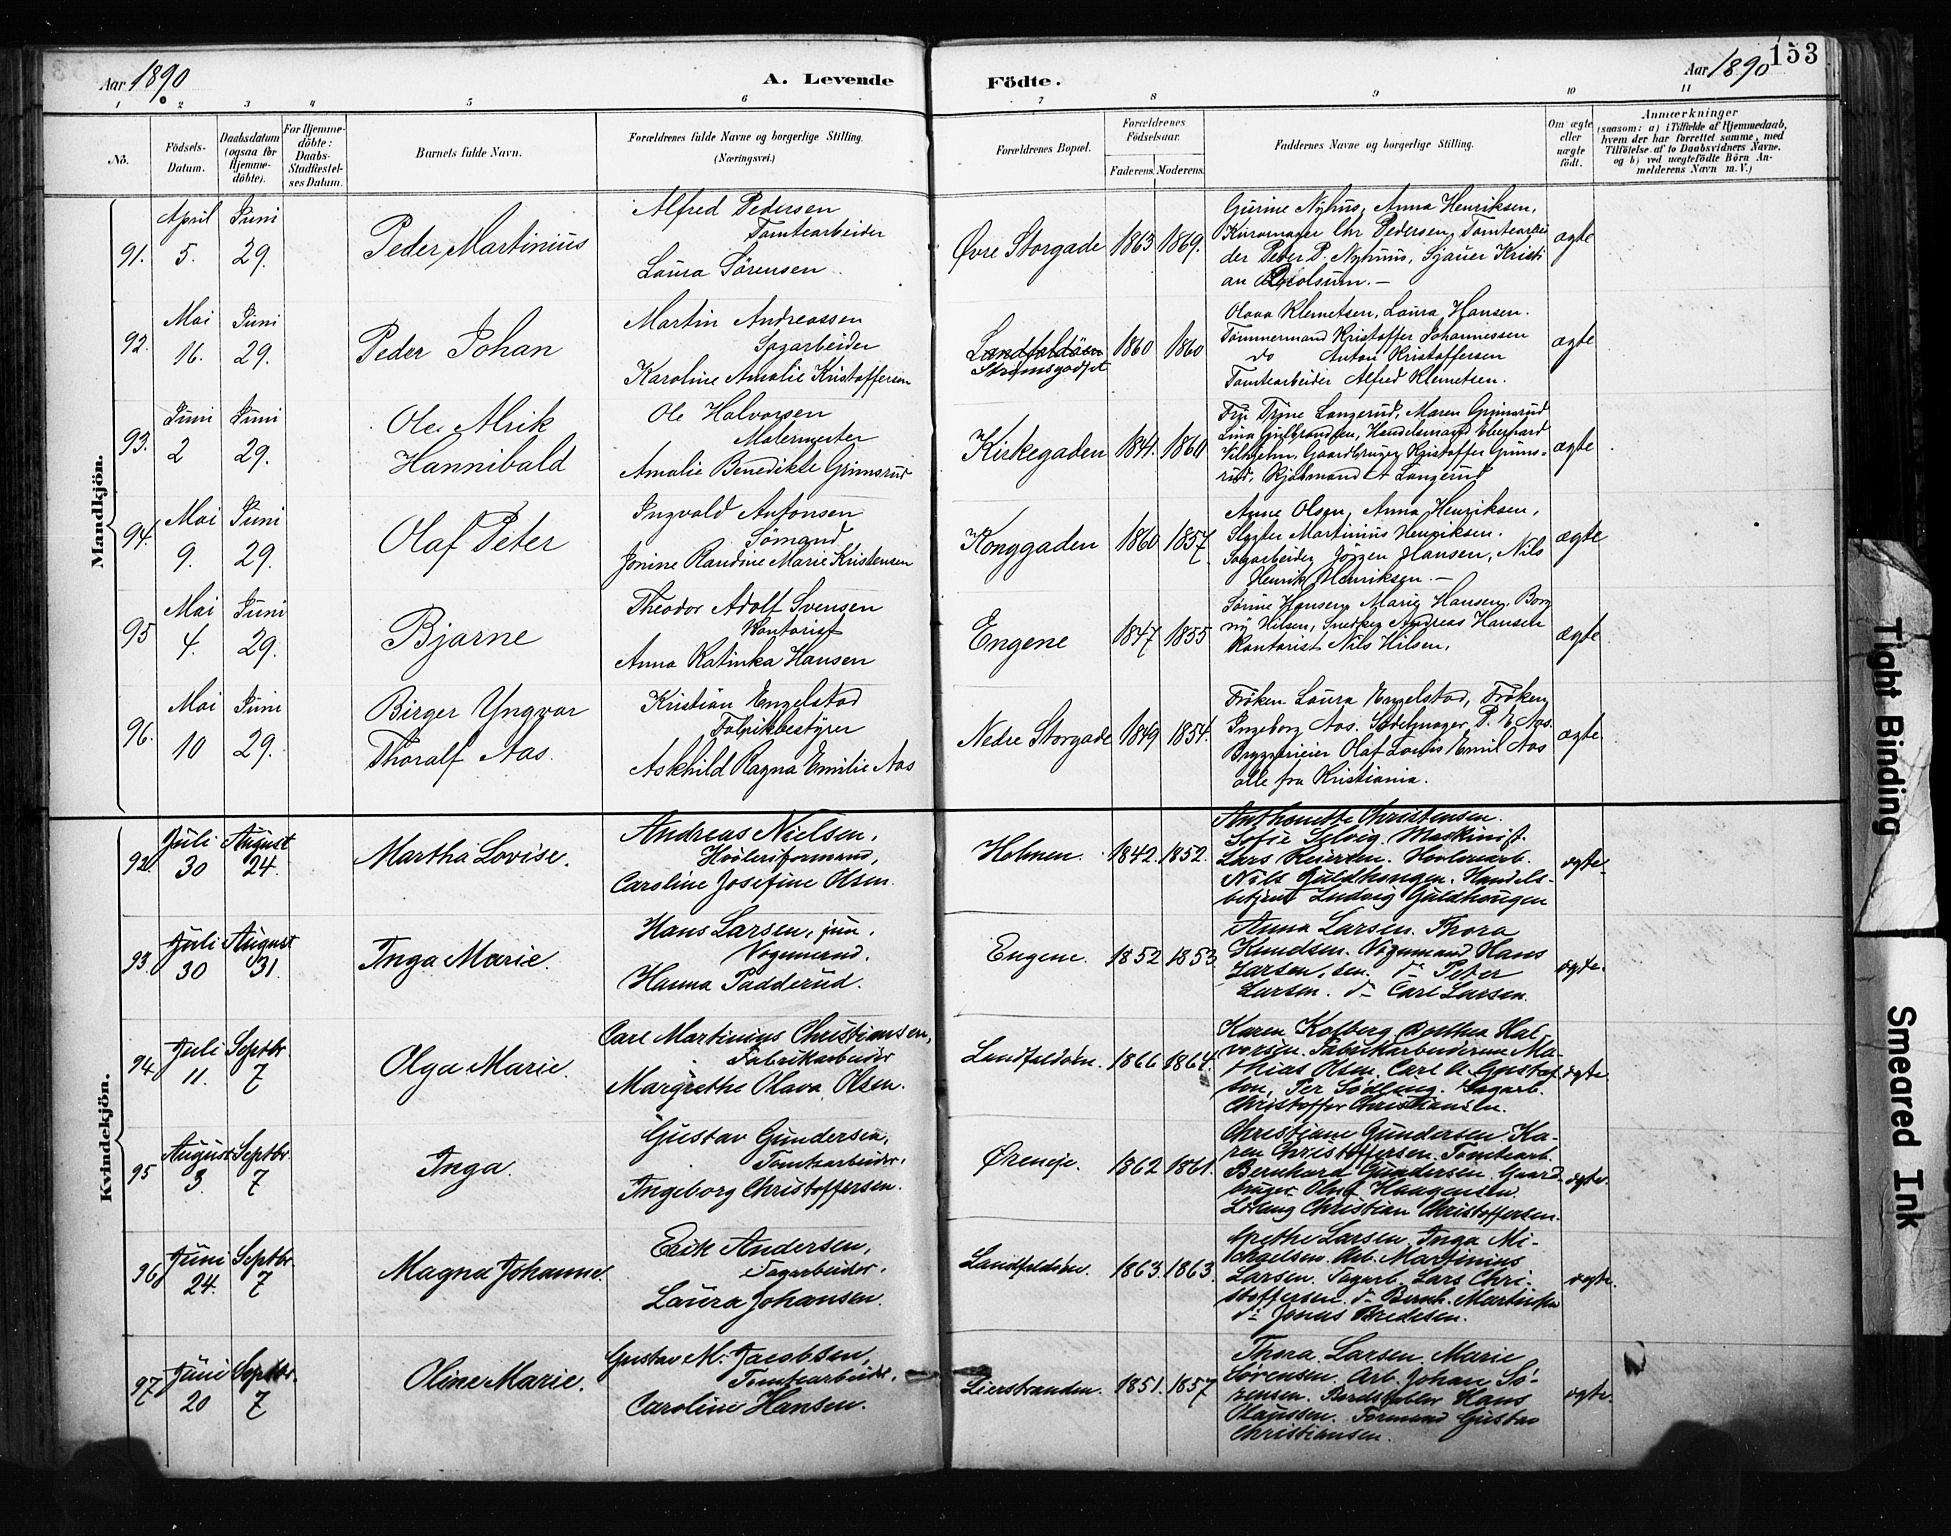 Aar 1890
A. Levende Födte.
Aar 1890
153
1 2 3 4 5 6 7 8 9 10 11
No.
Födsels-Datum.
Daabsdatum (ogsaa for Hjemme-döbte).
For Hjemme-döbte: Daabs-Stadfæstel-ses Datum.
Barnets fulde Navn.
Forældrenes fulde Navne og borgerlige Stilling. (Næringsvei.)
Forældrenes Bopæl.
Forældrenes Födselsaar.
Faderens. Moderens.
Faddernes Navne og borgerlige Stilling.
Om ægte eller uægte födt.
Anmærkninger
(saasom: a) i Tilfælde af Hjemmedaab, hvem der har forrettet samme, med Tilföielse af to Daabsvidners Navne, og b) ved uægtefödte Börn An-melderens Navn m. V.)
Mandkjön.
91. April 5. Juni 29. Peder Martinius
Alfred Pedersen
Tomtearbeider
Laura Sørensen
Øvre Storgade 1863 1869.
Gurine Nyhus, Anna Henriksen,
Kurvmager Chr Pedersen, Tomtearbei
der Peder P. Nyhuus, Sjauer Kristi
an
ægte
92. Mai 16. Juni 29. Peder Johan
Martin Andreassen
Sagarbeider
Karoline Amalie Kristoffersen
Landfaldöen
Strømsgodset
1860 1860
Olava Klemetsen, Laura Hansen.
Tømmermand Kristoffer Johannessen
do Anton Kristoffersen
Tomtearbeider Alfred Klemetsen.
ægte
93. Juni 2 Juni 29. Ole Alrik
Hannibald
Ole Halvorsen
Malermester
Amalie Benedikte Grimsrud
Kirkegaden 1841. 1860
Fru Trine Langerud, Maren Grimsrud
Lina Gulbrandsen, Handelsmand Eberhard
Vilhjelm, Gaardbruger Kristoffer Grims-
rud, Kjøbmand A Langerud
ægte
94. Mai 9. Juni 29. Olaf Peter
Ingvald Antonsen
Sømand
Jonine Randine Marie Kristensen
Konggaden 1860 1857.
Anne Olsen, Anna Henriksen,
Slagter Martinius Henriksen.
Sagarbeider Jørgen Hansen, Nils
Henrik Henriksen.—
ægte
95 Mai 4. Juni 29. Bjarne
Theodor Adolf Svensen
Kontorist
Anna Katinka Hansen
Engene 1847 1855
Sørine Hansen, Marie Hansen, Borg
ny Hilsen, Snedker Andreas Hansen
Kontorist Nils Hilsen,
ægte
96. Mai 10 Juni 29. Birger Yngvar
Thoralf Aas.
Kristian Engelstad
Fabrikbestyrer
Askhild Ragna Emilie Aas
Nedre Storgade 1849 1854.
Frøken Laura Engelstad, Frøken
Ingeborg Aas. Sadelmager P. E Aas.
Bryggerieier Olaf Louis Emil Aas
alle fra Kristiania.
ægte
Kvindekjön.
92. Juli 30 August 24. Martha Lovise.
Andreas Nielsen,
Høvleriformand,
Caroline Josefine Olsen.
Holmen. 1842. 1852.
Anthonette Christensen.
Sofie Selvig. Maskinist
Lars Reiersen. Høvleriarb.
Nils Guldhougen. Handels-
betjent Ludvig Guldhougen
ægte.
93. Juli 30 August 31. Inga Marie.
Hans Larsen, jun.
Vognmand.
Hanna Padderud.
Engene. 1852 1853
Anna Larsen. Thora
Knudsen. Vognmand Hans
Larsen, sen. do Peter
Larsen. do Carl Larsen.
ægte.
94. Juli 11. Septbr. 7 Olga Marie.
Carl Martinius Christiansen,
Fabrikarbeider
Margrethe Olava Olsen.
Landfaldøen. 1866 1864.
Karen Kolberg, Dorthea Hal
vorsen. Fabrikarbeiderne Ma-
thias Olsen. Carl A. Gustaf
sen, Per Södling. Sagarb.
Christoffer Christiansen.
ægte
95 August 3. Septbr 7 Inga.
Gustav Gundersen,
Tomtearbeider,
Ingeborg Christoffersen.
Øreneje. 1862 1861.
Christiane Gundersen. Ka-
ren Christoffersen. Tomtearb.
Bernhard Gundersen. Gaard
bruger Olaf Haagensen.
Christian Christoffersen.
ægte.
96. Juni 24. Septbr. 7 Magna Johanne.
Erik Andersen,
Sagarbeider,
Laura Johansen.
Landfaldøen. 1863. 1863.
Grethe Larsen. Inga Mi-
chaelsen. Arb. Martinius
Larsen. Sagarb. Lars Chri-
stoffersen. do Bernh. Martinsen
do Jonas Bredesen.
ægte.
97. Juni 20 Septbr. 7 Oline Marie.
Gustav M. Jacobsen,
Tomtearbeider,
Caroline Hansen.
Lierstranden. 1851. 1857
Thora Larsen. Marie
Sørensen. Arb. Johan Sö-
rensen. Bordstabler Hans
Claussen. Formand Gustav
Christiansen.
ægte.
Tight Binding
Smeared Ink